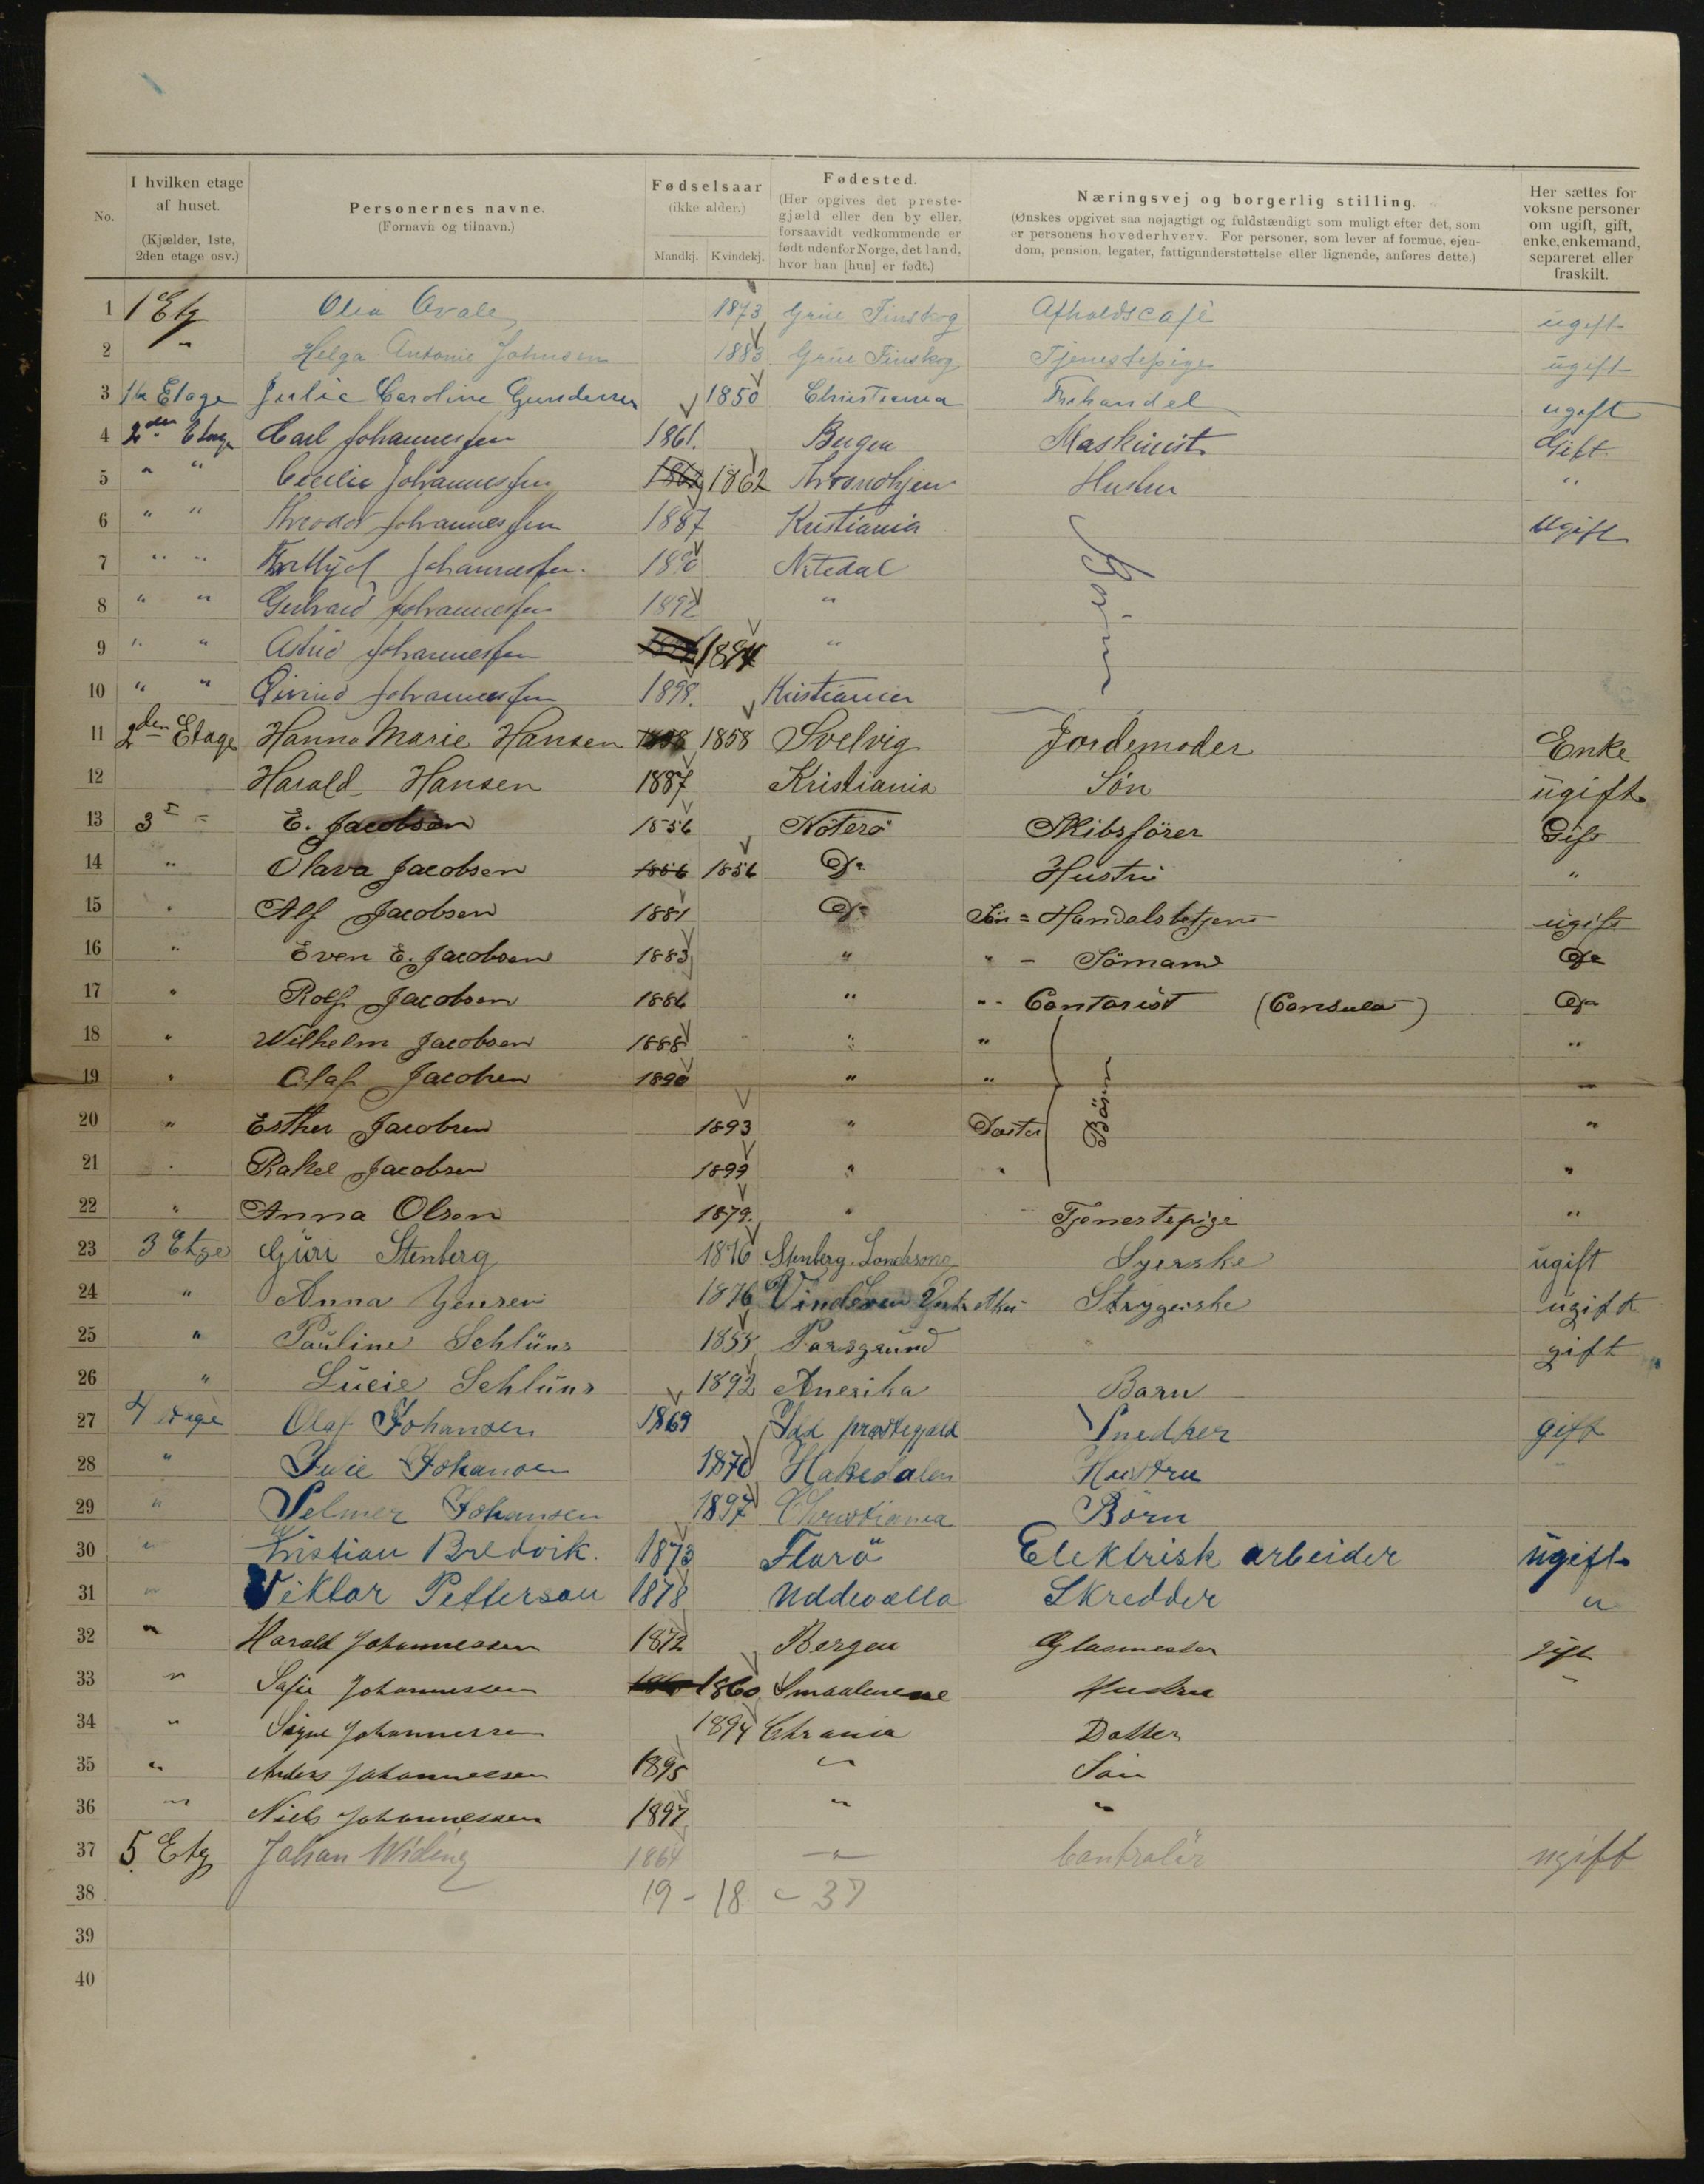 No.
I hvilken etage af huset. (Kjælder, 1ste, 2den etage osv.)
Personernes navne. (Fornavn og tilnavn.)
Fødselsaar (ikke alder.) Mandkj. Kvindekj.
Fødested. (Her opgives det prestegjæld eller den by eller, forsaavidt vedkommende er født udenfor Norge, det land, hvor han [hun] er født.)
Næringsvej og borgerlig stilling. (Ønskes opgivet saa nøjagtigt og fuldstændigt som muligt efter det, som er personens hovederhverv. For personer, som lever af formue, ejendom, pension, legater, fattigunderstøttelse eller lignende, anføres dette.)
Her sættes for voksne personer om ugift, gift, enke, enkemand, separeret eller fraskilt.
1 1 Etg Olea 1873 Grue Finskog Afholdscafé ugift
2 " Helga Antonie Johnsen 1883 Grue Finskog Tjenestepige ugift
3 1ste Etage Julie Caroline Gundersen 1850 Christiania ugift
4 2den Etage Carl Johannessen 1861. Bergen Maskinist Gift
5 " " Cecilie Johannessen 1862 Trondhjem Hustru "
6 " " Theodor Johannessen 1887 Kristiania Ugift
7 " " Johannessen. 1890 Nitedal
8 " " Gerhard Johannessen 1892 "
9 " " Astrid Johannessen 1894 "
10 " " Øivind Johannessen 1898. Kristiania
Børn
11 2den Etage Hanna Marie Hansen 1858 Svelvig Jordemoder Enke
12 Harald Hansen 1887 Kristiania Søn ugift
13 3 E. Jacobsen 1856 Nøterø Skibsfører Gift
14 " Olava Jacobsen 1856 1856 Do Hustru "
15 " Alf Jacobsen 1881 Do Søn = Handelsbetjent ugift
16 " Even E. Jacobsen 1883 " " - Sømand Do
17 " Rolf Jacobsen 1886 " " - Contorist (Consulat) Do
18 " Wilhelm Jacobsen 1888 " " "
19 " Olaf Jacobsen 1890 " "
20 " Esther Jacobsen 1893 " Datter "
21 " Rakel Jacobsen 1899 " " "
Børn
22 " Anna Olsen 1879. " Tjenestepige "
23 3 Etge Guri Stenberg 1876 Stenberg Syerske ugift
24 " Anna Jensen 1876 Vinderen Strygerske ugift
25 " Pauline Schlüns 1855 Porsgrund " gift
26 " Lucie Schlüns 1892 Amerika Barn
27 4 etage Olaf Johansen 1869 Idd prestegjæld Snedker gift
28 " Julie Johansen 1870 Hakedalen Hustru "
29 " Selmer Johansen 1897 Christiania Børn
30 " Kristian Bredvik. 1873 Florø Elektrisk arbeider ugift
31 " Viktor Petterson 1878 Uddevalla Skredder "
32 " Harald Johannessen 1872 Bergen Glasmester gift
33 " Sofie Johannessen 1860 Smaalenene Hustru "
34 " Signe Johannessen 1894 Chrania Datter
35 " Anders Johannessen 1895 " Søn
36 " Niels Johannessen 1897 " "
37 5 Etg Johan Widing 1864 " Controlør ugift
38 19 - 18 - 37
39
40